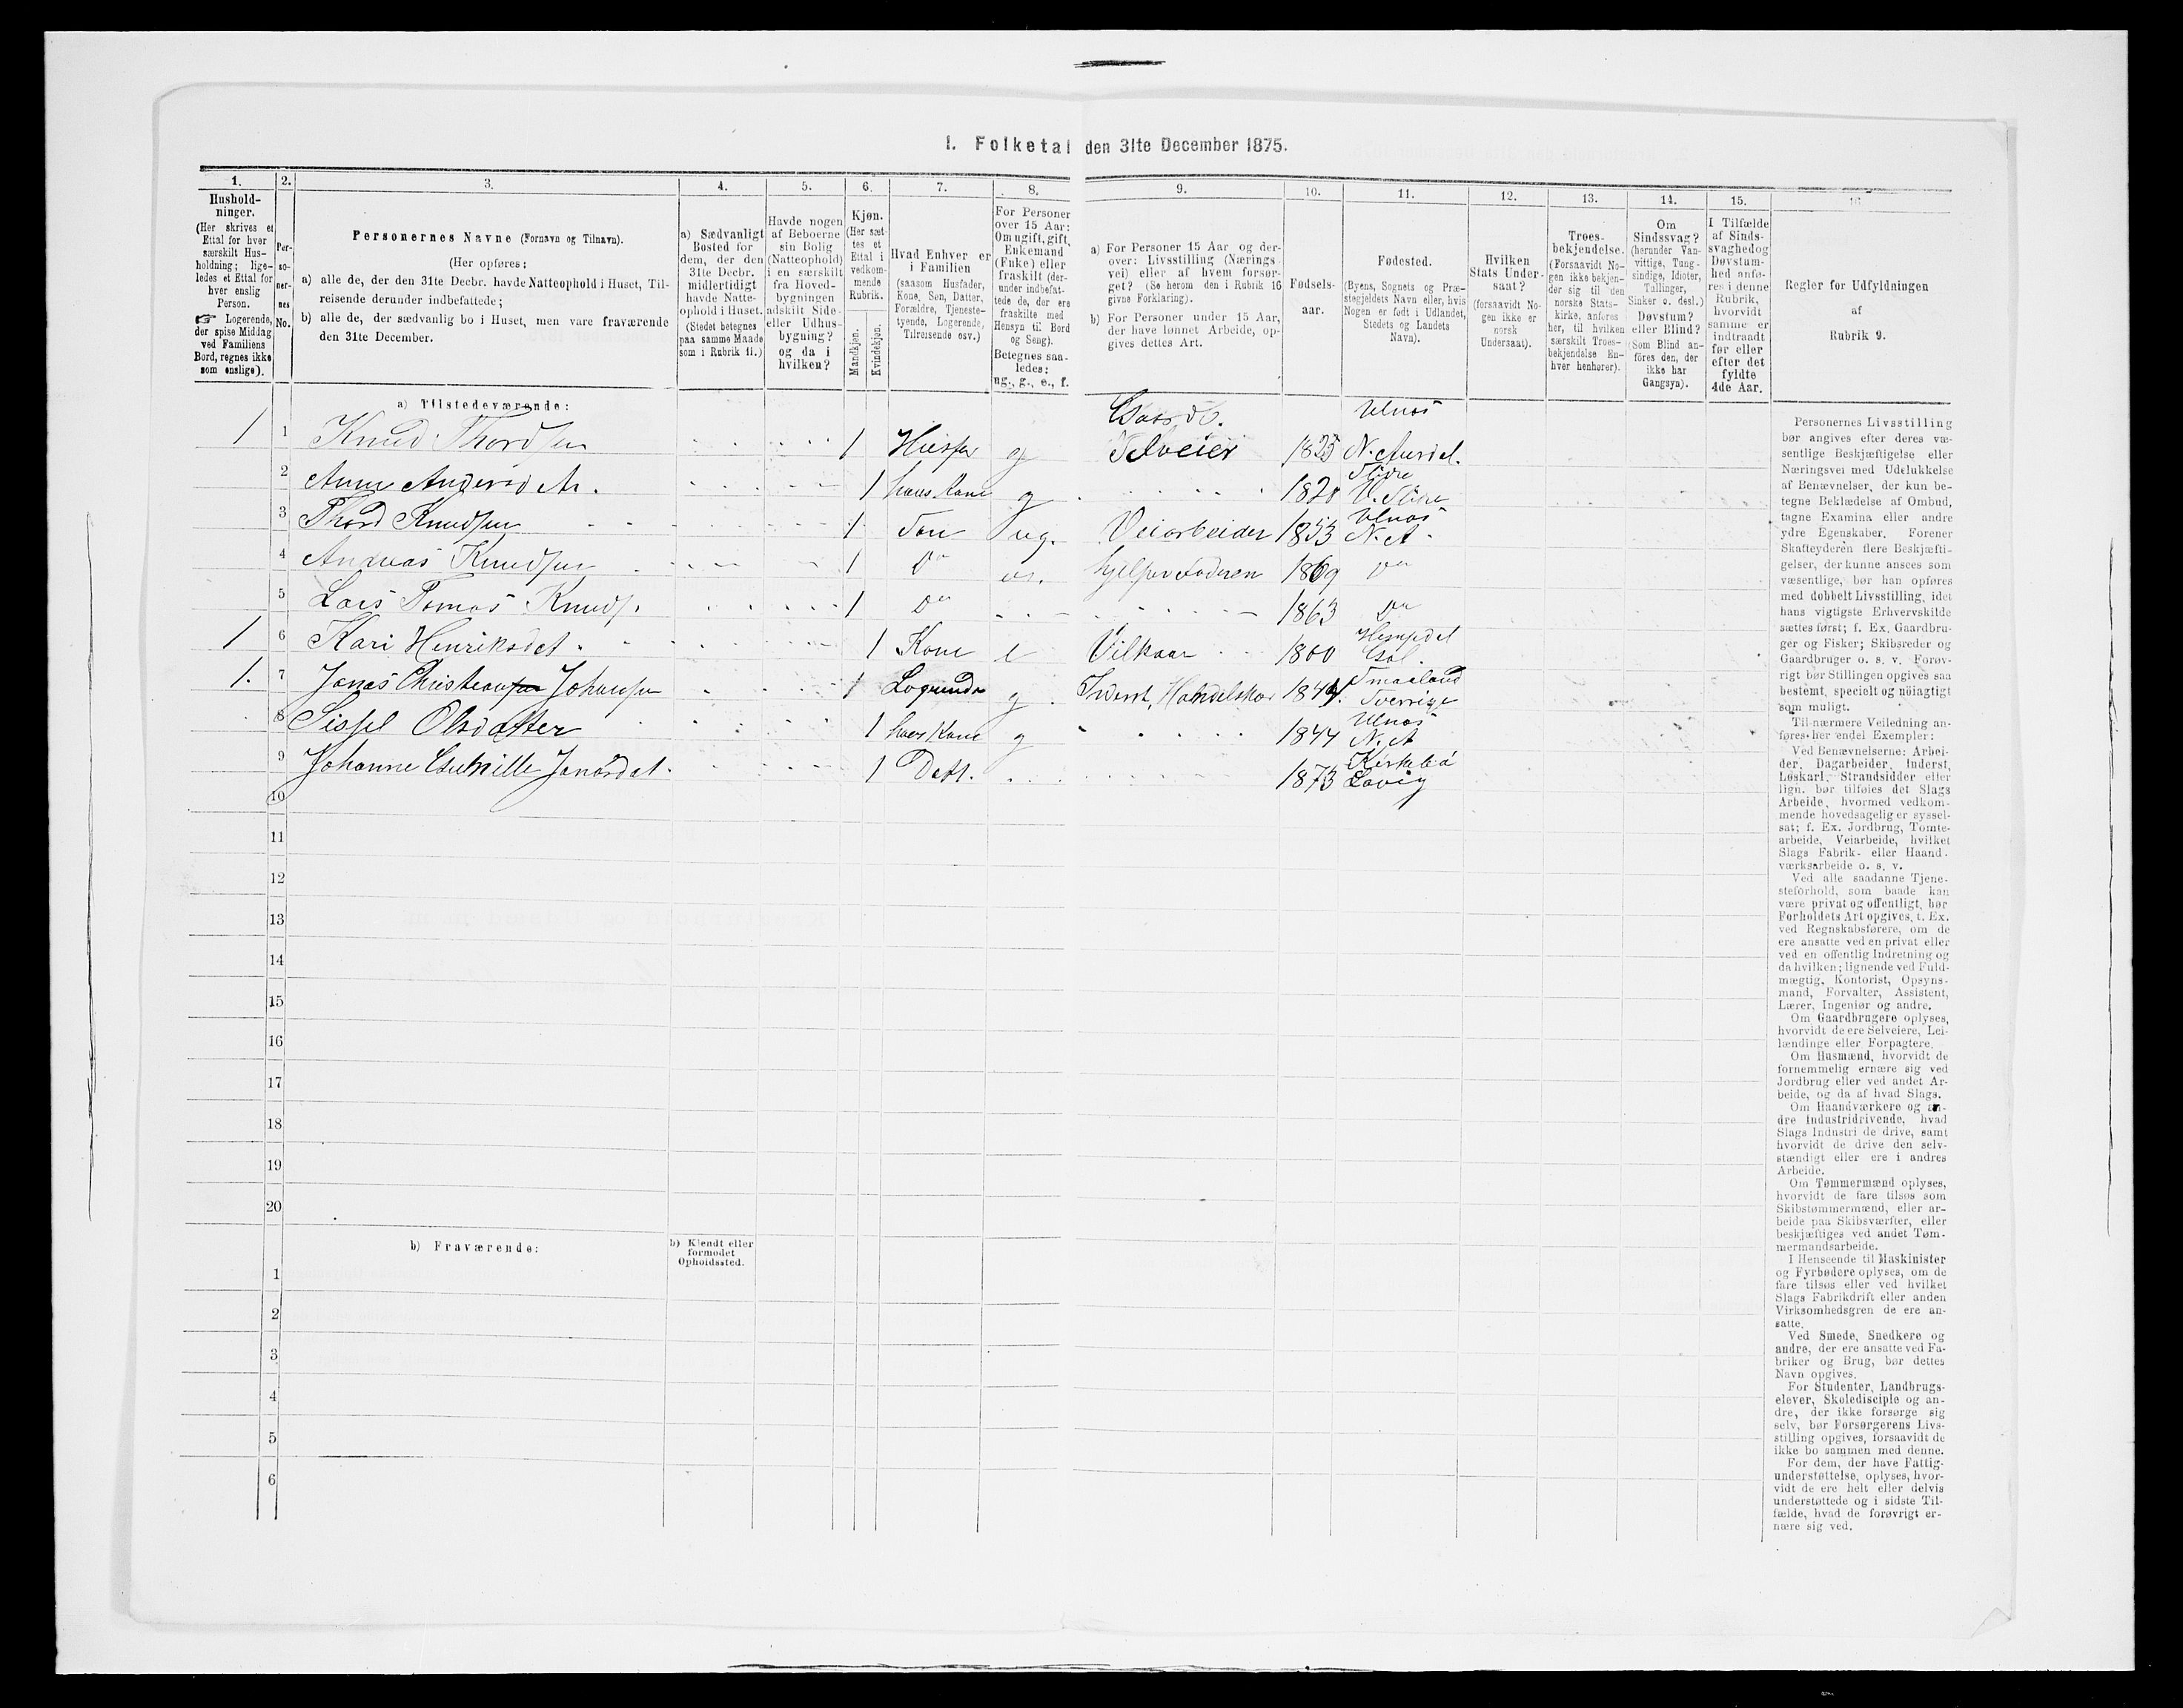 1. Folketal den 31te December 1875.
1. 2. 3. 4. 5. 6. 7. 8. 9. 10. 11. 12. 13. 14. 15. 16
Hushold-
ninger.
(Her skrives et
Ettal for hver
særskilt Hus-
holdning; lige-
ledes et Ettal for
hver enslig
Person.
☞ Logerende,
der spise Middag
ved Familiens
Bord, regnes ikke
som enslige).
Per-
so-
ner-
nes
No.
Personernes Navne (Fornavn og Tilnavn).
(Her opføres:
a) alle de, der den 31te Decbr. havde Natteophold i Huset, Til-
reisende derunder indbefattede;
b) alle de, der sædvanlig bo i Huset, men vare fraværende
den 31te December.
a) Sædvanligt
Bosted for
dem, der den
31te Decbr.
midlertidigt
havde Natte-
ophold i Huset.
(Stedet betegnes
paa samme Maade
som i Rubrik 11.)
Havde nogen
af Beboerne
sin Bolig
(Natteophold)
i en særskilt
fra Hoved-
bygningen
adskilt Side-
eller Udhus-
bygning?
og da i
hvilken?
Kjøn.
(Her sæt-
tes et
Ettal i
vedkom-
mende
Rubrik.
Mandkjøn.
Kvindekjøn.
Hvad Enhver er
i Familien
(saasom Husfader,
Kone, Søn, Datter,
Forældre, Tjeneste-
tyende, Logerende,
Tilreisende osv.)
For Personer
over 15 Aar:
Om ugift, gift,
Enkemand
(Enke) eller
fraskilt (der-
under indbefat-
tede de, der ere
fraskilte med
Hensyn til Bord
og Seng).
Betegnes saa-
ledes:
ug., g., e., f.
a) For Personer 15 Aar og der-
over: Livsstilling (Nærings-
vei) eller af hvem forsør-
get? (Se herom den i Rubrik 16
givne Forklaring).
b) For Personer under 15 Aar,
der have lønnet Arbeide, op-
gives dettes Art.
Fødsels-
aar.
Fødested.
(Byens, Sognets og Præ-
stegjeldets Navn eller, hvis
Nogen er født i Udlandet,
Stedets og Landets
Navn).
Hvilken
Stats Under-
saat?
(forsaavidt No-
gen ikke er
norsk
Undersaat).
Troes-
bekjendelse.
(Forsaavidt No-
gen ikke bekjen-
der sig til den
norske Stats-
kirke, anføres
her, til hvilken
særskilt Troes-
bekjendelse En-
hver henhører).
Om
Sindssvag?
(herunder Van-
vittige, Tung-
sindige, Idioter,
Tullinger,
Sinker o. desl.)
Døvstum?
eller Blind?
(Som Blind an-
føres den, der
ikke har
Gangsyn).
I Tilfælde
af Sinds-
svaghed og
Døvstum-
hed anfø-
res i denne
Rubrik,
hvorvidt
samme er
indtraadt
før eller
efter det
fyldte
4de Aar.
Regler for Udfyldningen
af
Rubrik 9.
a) Tilstedeværende:
Gaardb. Ulnæs
1 1 Knud Thordsen 1 Husfa g Selveier 1825 N. Aurdal.
Slidre
2 Anne Andersdtr. 1 hans Kone g 1820 V. Slidre
Ulnæs
3 Thord Knudsen 1 Søn ug. Veiarbeider 1853 N. A.
4 Andreas Knudsen 1 Do ug. hjelper Faderen 1869 Do
5 Lars Tomas Knuds. 1 Do 1863 Do
Hemsedal
1 6 Kari Henriksdet. 1 Kone e Vilkaar 1800 Gol.
Smaaland
1. 7 Jonas Christiansen Johansen 1 Logerende g Inderst, Handelskar 1844. Sverrige
Ulnæs
8 Sissel Olsdatter 1 hans Kone g 1844 N. A
Kirkebö
9 Johanne Gunille Jonasdat. 1 Datt. 1873 Lavig
10
11
12
13
14
15
16
17
18
19
20
b) Fraværende:
b) Kjendt eller
formodet
Opholdssted.
1
2
3
4
5
6
Personernes Livsstilling
bør angives efter deres væ-
sentlige Beskjæftigelse eller
Næringsvei med Udelukkelse
af Benævnelser, der kun be-
tegne Beklædelse af Ombud,
tagne Examina eller andre
ydre Egenskaber. Forener
Skatteyderen flere Beskjæfti-
gelser, der kunne ansees som
væsentlige, bør han opføres
med dobbelt Livsstilling, idet
hans vigtigste Erhvervskilde
sættes først; f. Ex. Gaardbru-
ger og Fisker; Skibsreder og
Gaardbruger o. s. v. Forøv-
rigt bør Stillingen opgives saa
bestemt, specielt og nöiagtigt
som muligt.
Til nærmere Veiledning an-
føres her endel Exempler:
Ved Benævnelserne: Arbei-
der, Dagarbeider, Inderst,
Løskarl, Strandsidder eller
lign. bør tilføies det Slags
Arbeide, hvormed vedkom-
mende hovedsagelig er syssel-
sat; f. Ex. Jordbrug, Tomte-
arbeide, Veiarbeide, hvilket
Slags Fabrik- eller Haand-
værksarbeide o. s. v.
Ved alle saadanne Tjene-
steforhold, som baade kan
være privat og offentligt, bør
Forholdets Art opgives, t. Ex.
ved Regnskabsførere, om de
ere ansatte ved en privat eller
ved en offentlig Indretning og
da hvilken; lignende ved Fuld-
mægtig, Kontorist, Opsyns-
mand, Forvalter, Assistent,
Lærer, Ingeniør og andre.
Om Gaardbrugere oplyses,
hvorvidt de ere Selveiere, Lei-
lændinge eller Forpagtere.
Om Husmænd, hvorvidt de
fornemmelig ernære sig ved
Jordbrug eller ved andet Ar-
beide, og da af hvad Slags.
Om Haandværkere og an-
dre Industridrivende, hvad
Slags Industri de drive, samt
hvorvidt de drive den selv-
stændigt eller ere i andres
Arbeide.
Om Tømmermænd oplyses,
hvorvidt de fare tilsøs som
Skibstømmermænd, eller ar-
beide paa Skibsværfter, eller
beskjæftiges ved andet Tøm-
mermandsarbeide.
I Henseende til Maskinister
og Fyrbødere oplyses, om de
fare tilsøs eller ved hvilket
Slags Fabrikdrift eller anden
Virksomhedsgren de ere an-
satte.
Ved Smede, Snedkere og
andre, der ere ansatte ved Fa-
briker og Brug, bør dettes
Navn opgives.
For Studenter, Landbrugs-
elever, Skoledisciple og an-
dre, der ikke forsørge sig
selv, bør Forsørgerens Livs-
stilling opgives, forsaavidt de
ikke bo sammen med denne.
For dem, der have Fattig-
understøttelse, oplyses, hvor-
vidt de ere helt eller delvis
understøttede og i sidste Til-
fælde, hvad de forøvrigt er-
nære sig ved.